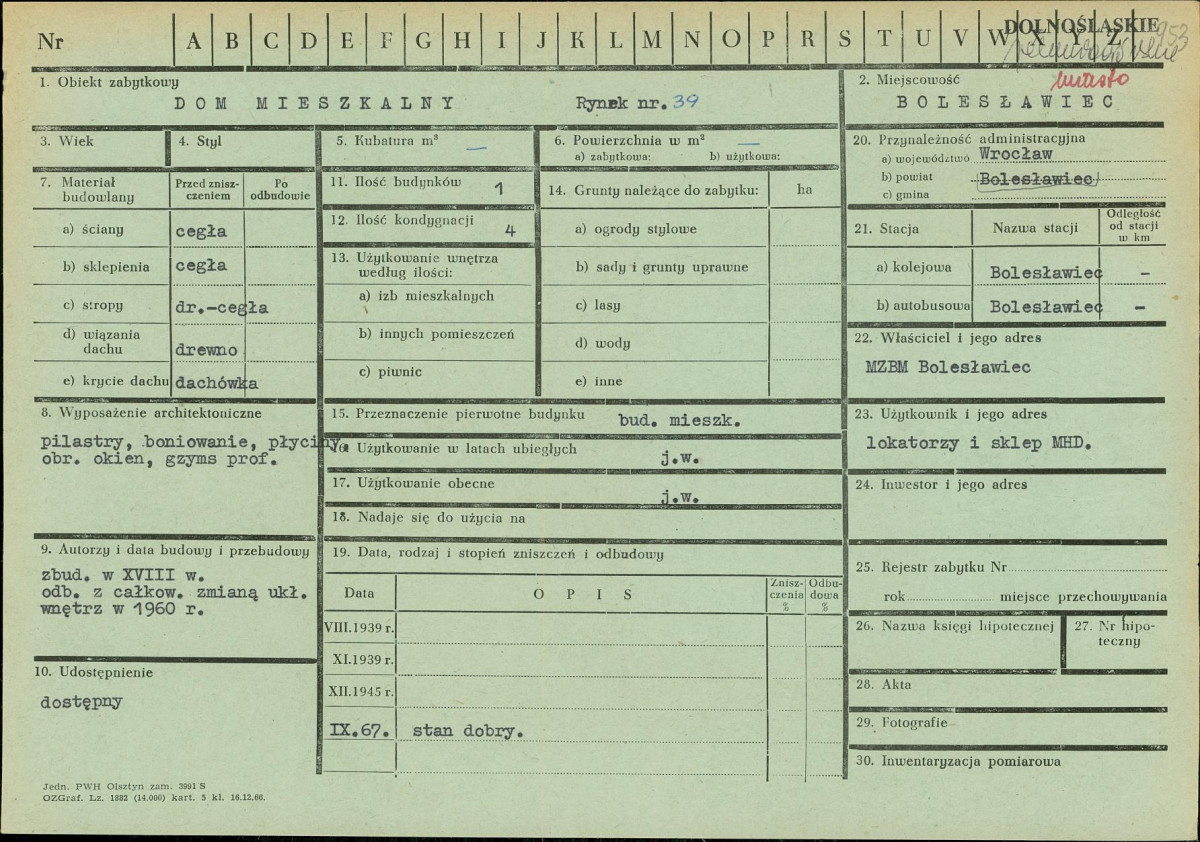 Nr A B C D E F G H I J K L M N O P R S T U V W X Y Z
DOLNOŚLĄSKIE
953
1. Obiekt zabytkowy
DOM MIESZKALNY Rynek nr. 39
2. Miejscowość
miasto
BOLESŁAWIEC
3. Wiek
4. Styl
5. Kubatura m³ —
6. Powierzchnia w m² —
a) zabytkowa: b) użytkowa:
20. Przynależność administracyjna
a) województwo Wrocław
b) powiat Bolesławiec
c) gmina
7. Materiał budowlany
Przed zniszczeniem
Po odbudowie
a) ściany cegła
b) sklepienia cegła
c) stropy dr.-cegła
d) wiązania dachu drewno
e) krycie dachu dachówka
11. Ilość budynków 1
12. Ilość kondygnacji 4
13. Użytkowanie wnętrza według ilości:
a) izb mieszkalnych
b) innych pomieszczeń
c) piwnic
14. Grunty należące do zabytku: ha
a) ogrody stylowe
b) sady i grunty uprawne
c) lasy
d) wody
e) inne
21. Stacja
Nazwa stacji
Odległość od stacji w km
a) kolejowa Bolesławiec -
b) autobusowa Bolesławiec -
22. Właściciel i jego adres
MZBM Bolesławiec
8. Wyposażenie architektoniczne
pilastry, boniowanie, płyciny,
obr. okien, gzyms prof.
15. Przeznaczenie pierwotne budynku bud. mieszk.
16. Użytkowanie w latach ubiegłych j.w.
17. Użytkowanie obecne j.w.
18. Nadaje się do użycia na
23. Użytkownik i jego adres
lokatorzy i sklep MHD.
24. Inwestor i jego adres
9. Autorzy i data budowy i przebudowy
zbud. w XVIII w.
odb. z całkow. zmianą ukł.
wnętrz w 1960 r.
19. Data, rodzaj i stopień zniszczeń i odbudowy
Data OPIS Zniszczenia % Odbudowa %
VIII.1939 r.
XI.1939 r.
XII.1945 r.
IX.67. stan dobry.
25. Rejestr zabytku Nr
rok miejsce przechowywania
26. Nazwa księgi hipotecznej
27. Nr hipoteczny
28. Akta
29. Fotografie
30. Inwentaryzacja pomiarowa
10. Udostępnienie
dostępny
Jedn. PWH Olsztyn zam. 3991 S
OZGraf. Lz. 1882 (14.000) kart. 5 kl. 16.12.66.